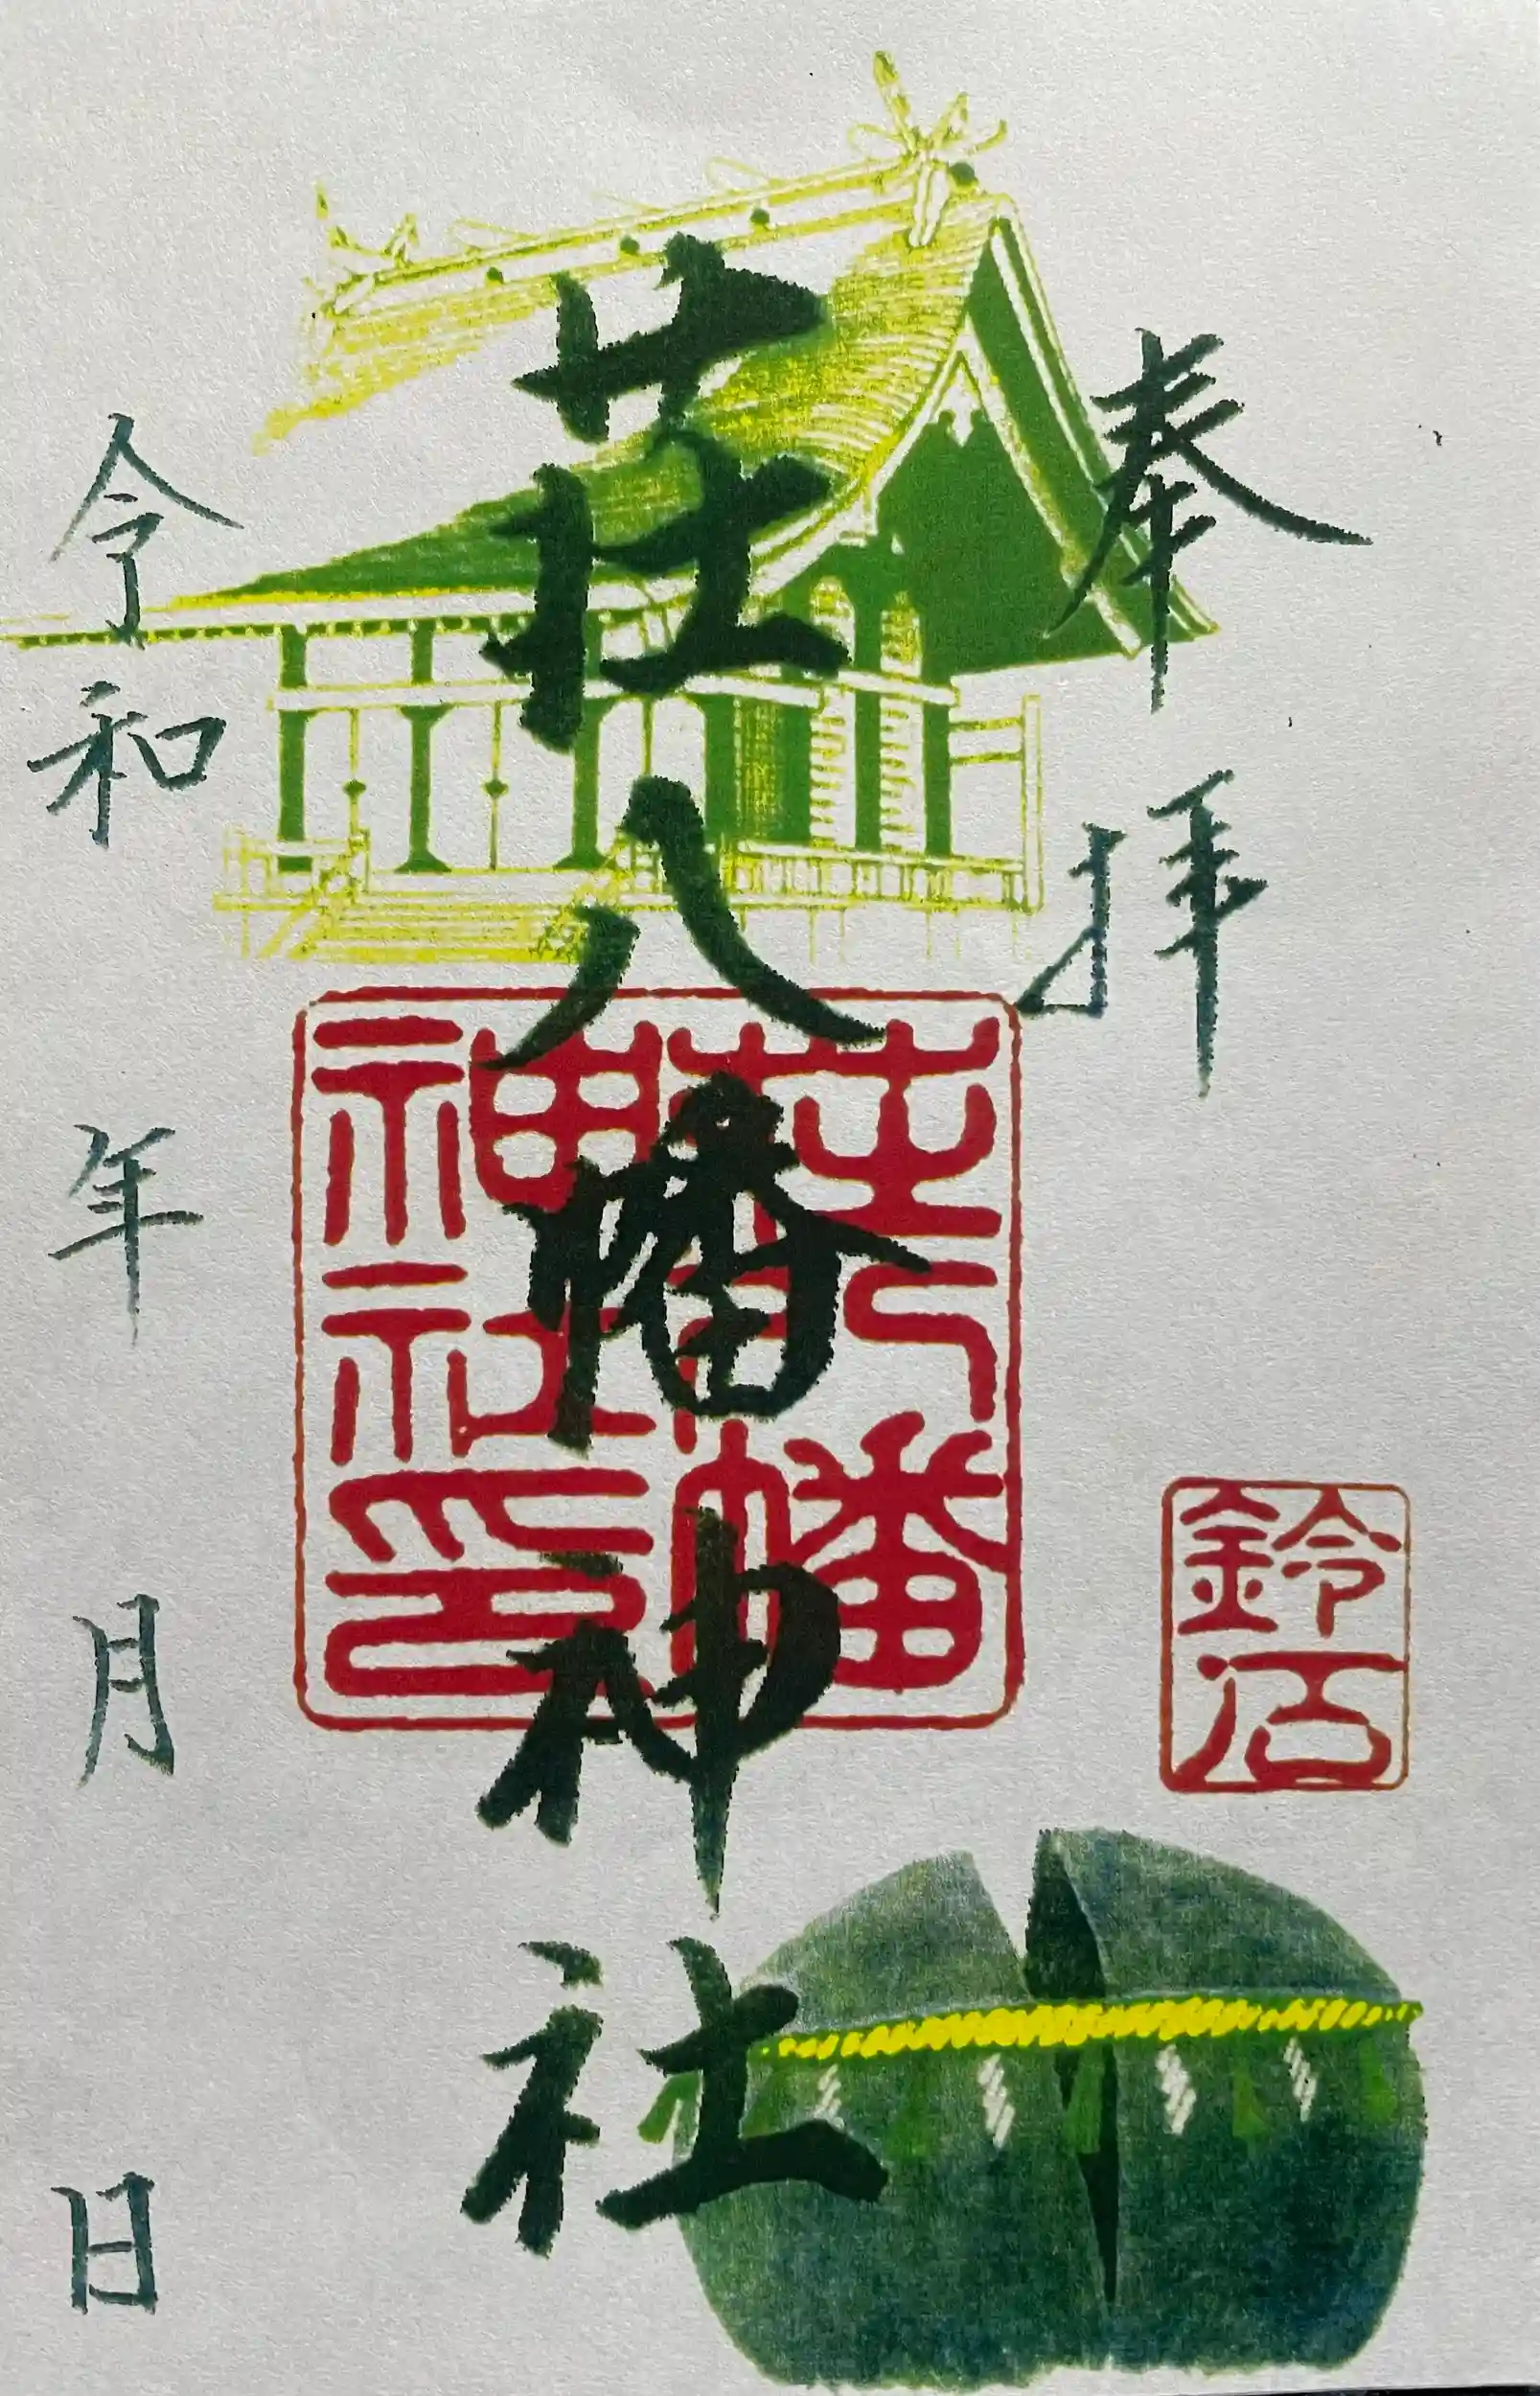 奉拝
鈴石
荘八幡神社
荘八幡
神社印
令和 年 月 日